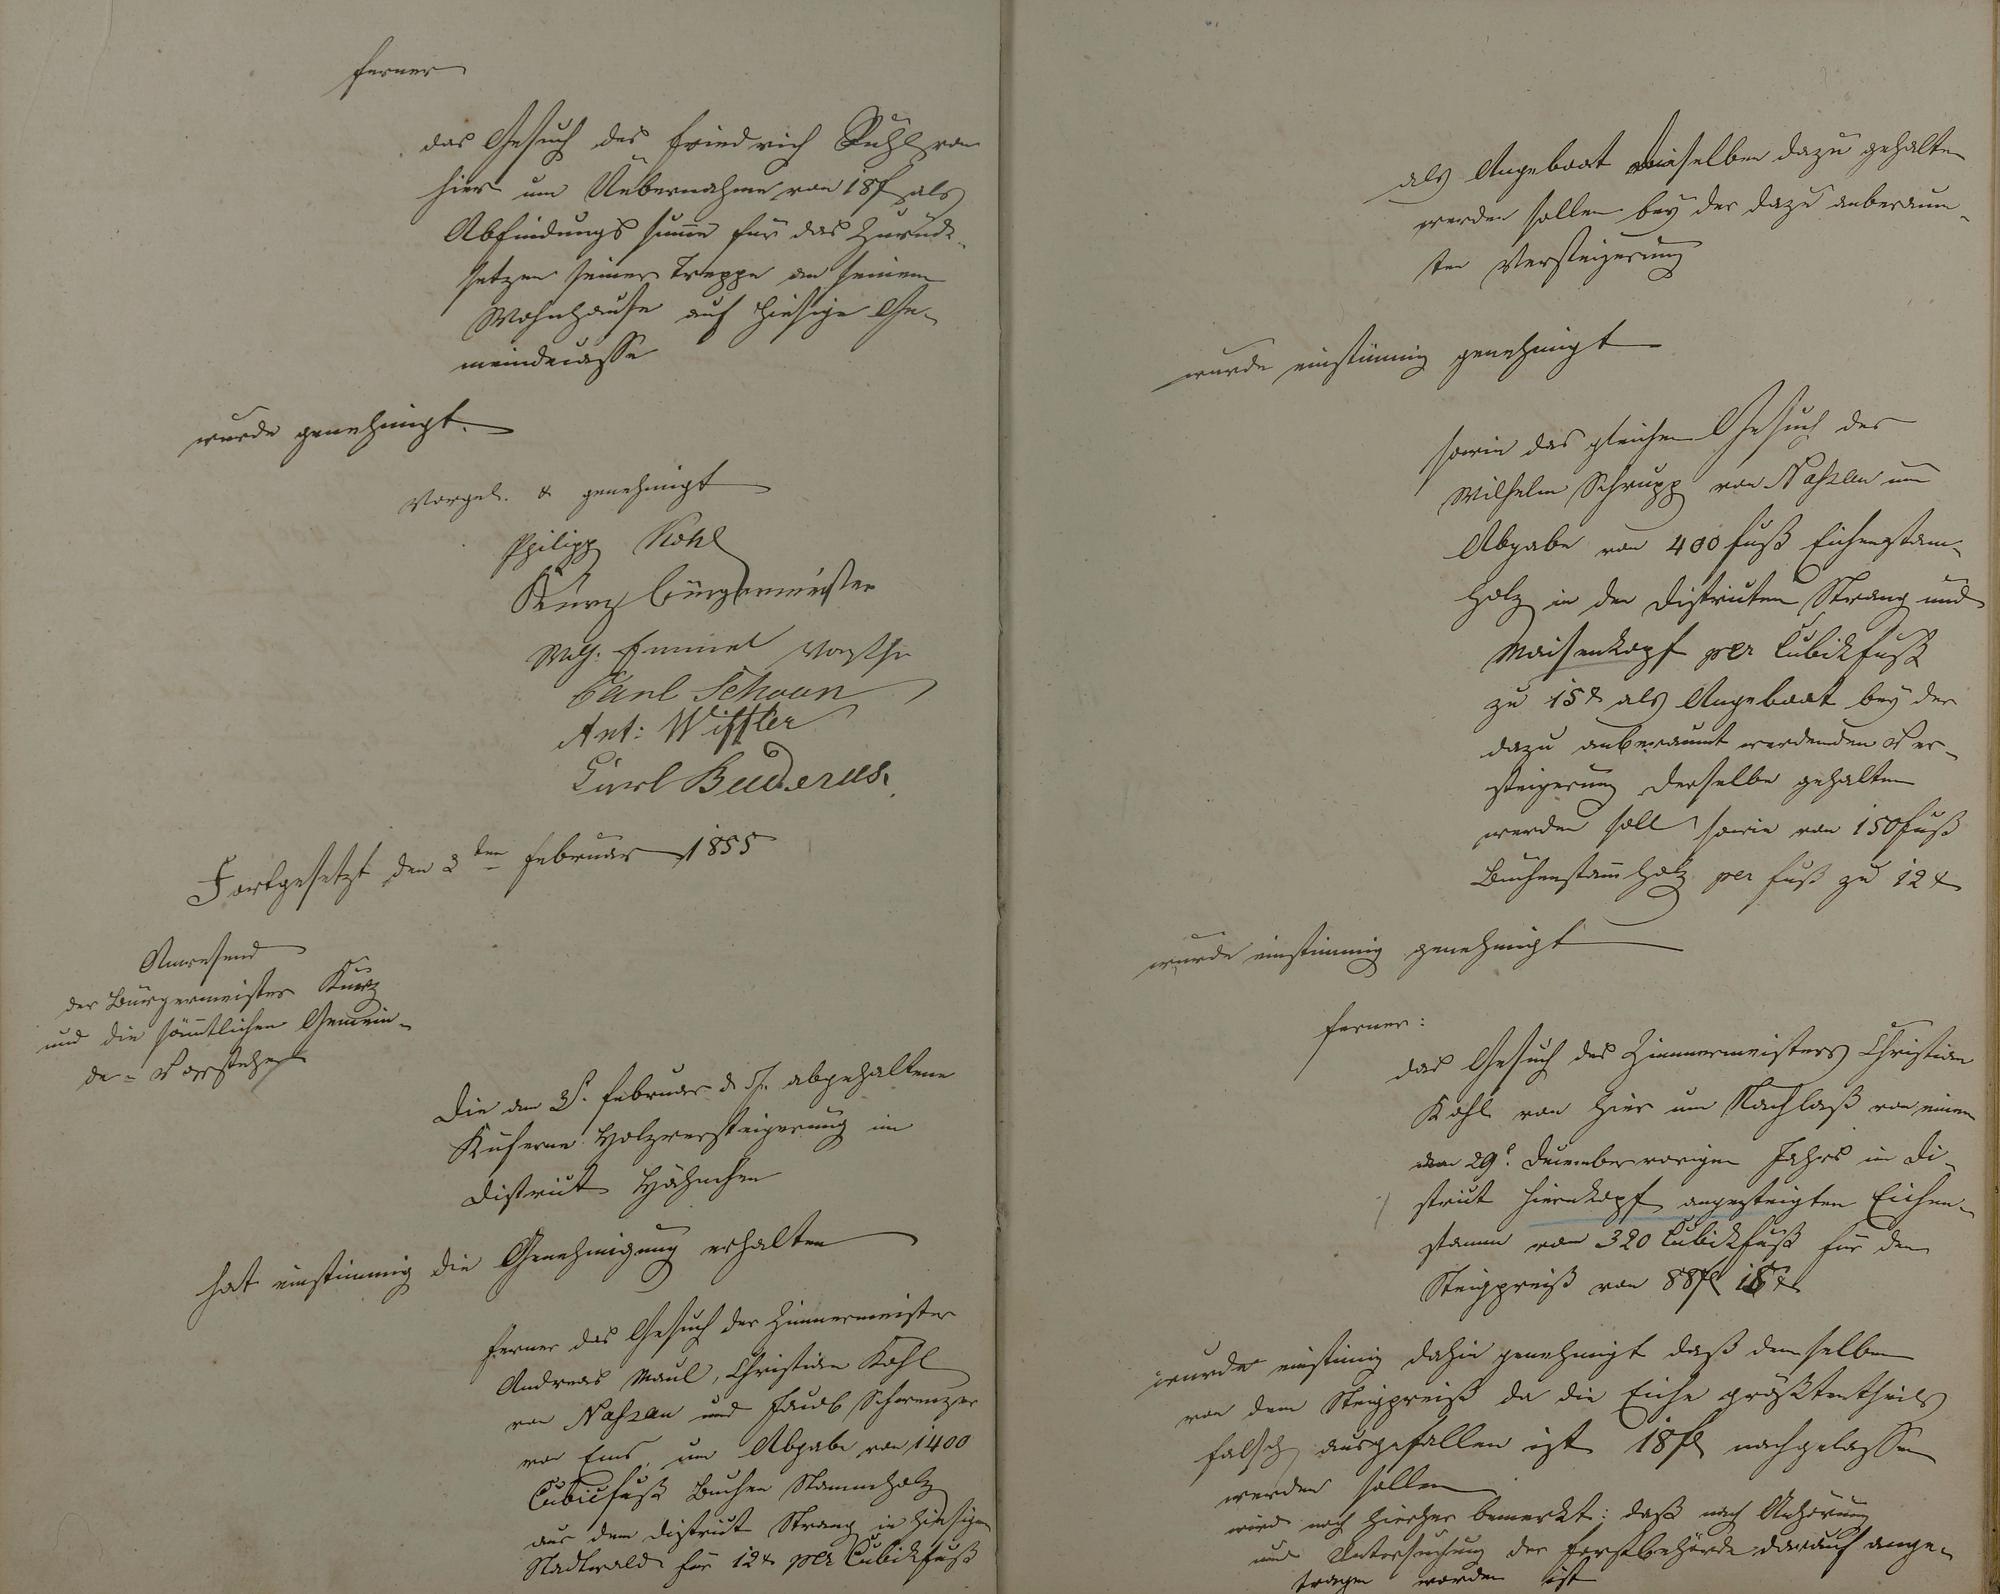 ferner
das Gesuch des Friedrich Rühl von
hier um Uebernahme von 18f als
Abfindungs sum̅e für das Zurück-
setzen seiner Treppe an seinem
Wohnhause auf hiesige Ge-
meindecasse
wurde genehmigt.
Vorgel. & genehmigt
Philipp Kohl
Kurz Bürgermeister
Wilh. Emmel Vorsthr
Carl Schoan
Ant: Wiffler
Carl Buderus.
Fortgesetzt den 3ten Februar 1855
Anwesend
der Bürgermeister Kurz
und die säm̅tlichen Gemein-
de-Vorsteher
Die am Februar d. J. abgehaltene
Holzversteigerung im
District Hähnchen
hat einstimmig die Genehmigung erhalten
ferner das Gesuch der Zimmermeister
Andreas Maul, Christian Kohl
von Nassau und Jacob Schrenzer
von Ems, um Abgabe von 1400
Cubicfuß Buchen Stammholz
aus dem District Strang in hiesigem
Stadtwald für 12x per Cubickfuß
als Angeboot dieselben dazu gehalten
werden sollen bey der dazu anberaum-
ten Versteigerung
wurde einstim̅ig genehmigt
sowie das gleichen Gesuch des
Wilhelm Schrupp von Nassau um
Abgabe von 400 Fuß Eichenstam̅-
holz in den Districten Strang und
Maisenkopf per Cubickfuß
zu 15x als Angeboot bey der
dazu anberaumt werdenden Ver-
steigerung derselbe gehalten
werden soll sowie von 150 Fuß
Buchenstam̅holz per Fuß zu 12x
wurde einstimmig genehmigt
ferner:
das Gesuch des Zimmermeisters Christian
Kohl von hier um Nachlaß von einem
den 29t. December vorigen Jahrs in Di-
strict Hirnkopf angesteigten Eichen-
stamm von 320 Cubickfuß für den
Steigpreiß von 88fl 18x
wurde einstim̅ig dahin genehmigt daß demselben
von dem Steigpreiß da die Eiche größtentheils
falsch ausgefallen ist 18fl nachgelassen
werden sollen
wird noch hierher bemerkt: daß nach Anhörung
und Untersuchung der Forstbehörde darauf ange-
tragen worden ist